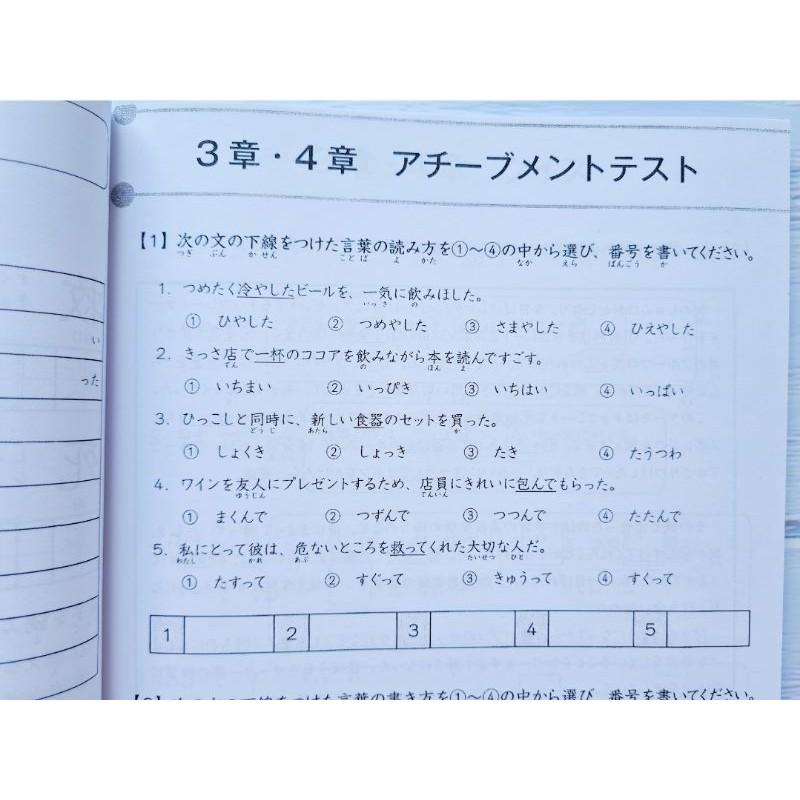 い
った
3章・4章 アチーブメントテスト
【1】次の文の下線をつけた言葉の読み方を①～④の中から選び、番号を書いてください。
つぎ ぶん かせん ことば よ かた なか えら ばんごう か
1. つめたく冷やしたビールを、一気に飲みほした。
いっき の
① ひやした ② つめやした ③ さまやした ④ ひえやした
2. きっさ店で一杯のココアを飲みながら本を読んですごす。
てん の ほん よ
① いちまい ② いっぴき ③ いちはい ④ いっぱい
3. ひっこしと同時に、新しい食器のセットを買った。
どうじ あたら か
① しょくき ② しょっき ③ たき ④ たうつわ
4. ワインを友人にプレゼントするため、店員にきれいに包んでもらった。
ゆうじん てんいん
① まくんで ② つずんで ③ つつんで ④ たたんで
5. 私にとって彼は、危ないところを救ってくれた大切な人だ。
わたし かれ あぶ たいせつ ひと
① たすって ② すぐって ③ きゅうって ④ すくって
1 2 3 4 5
の下線をつけた言葉の書き方を①～④の中から選び、番号を書いてください。